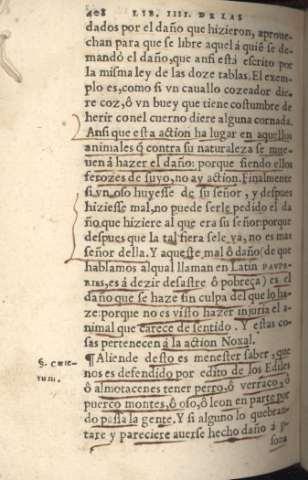 408 LIB. IIII. DE LAS
dados por el daño que hizieron, aproue-
chan para que se libre aquel á quiē se de-
mandò el daño, que ansi está escrito por
la misma ley de las doze tablas. El exem-
plo es, como si vn cauallo cozeador die-
re coz, ô vn buey que tiene costumbre de
herir con el cuerno diere alguna cornada.
Ansi que esta action ha lugar en aquellos
animales q̃ contra su naturaleza se mue-
uen á hazer el daño: porque siendo ellos
ferozes de suyo, no ay action. Finalmente
si vn oso huyesse de su señor, y despues
hiziesse mal, no puede serle pedido el da
ño que hiziere al que era su señor: porque
despues que la tal fiera se le va, no es mas
señor della. Y aqueste mal ô daño (de que
hablamos al qual llaman en Latin PAVPE-
RIES, es á dezir desastre ô pobreça) es el
daño que se haze sin culpa del que lo ha-
ze: porque no es visto hazer injuria el a-
nimal que carece de sentido. Y estas co-
sas pertenecen á la action Noxal.
¶ Aliende desto es menester saber, que
nos es defendido por edito de los Ediles
ô almotacenes tener perro, ô verraco, ô
puerco montes, ô oso, ô leon en parte por
do passa la gente. Y si alguno lo quebran-
tare y pareciere auerse hecho daño á per
sona